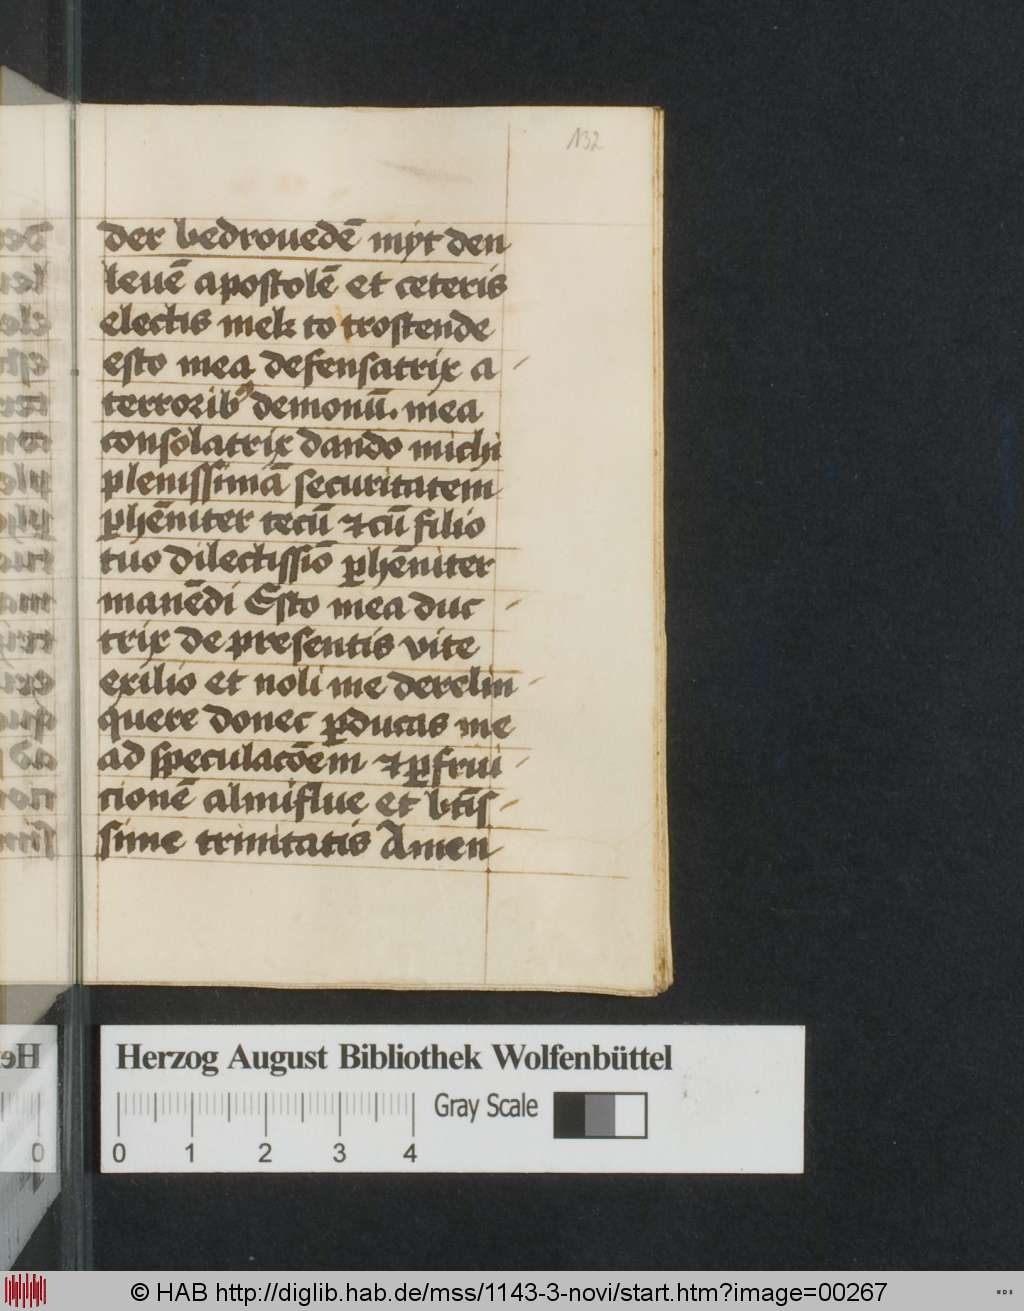 132
der bedrouedē myt den
leuē apostolē et ceteris
electis mek to trostende
esto mea defensatrix a
terroribꝰ demonū. mea
consolatrix dando michi
plenissimā securitatem
ꝑhēniter tecū ⁊ cū filio
tuo dilectissīo ꝑhēniter
manēdi Esto mea duc
trix de presentis vite
exilio et noli me derelin
quere donec ꝑducas me
ad speculacōem ⁊ ꝑfrui
cionē almiflue et btīs
sime trinitatis Amen
Herzog August Bibliothek Wolfenbüttel
Gray Scale
0 1 2 3 4
© HAB http://diglib.hab.de/mss/1143-3-novi/start.htm?image=00267